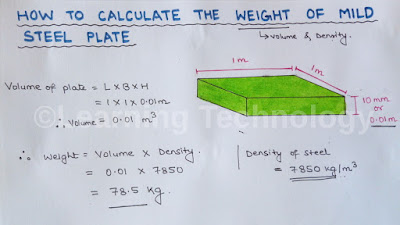 HOW TO CALCULATE THE WEIGHT OF MILD
STEEL PLATE
↳ Volume & Density.
Volume of plate = L × B × H
= 1 × 1 × 0.01m
∴ Volume = 0.01 m³
1m
1m
10 mm
or
0.01m
©Learning Technology
∴ Weight = Volume × Density.
= 0.01 × 7850
= 78.5 kg.
Density of steel
= 7850 kg/m³